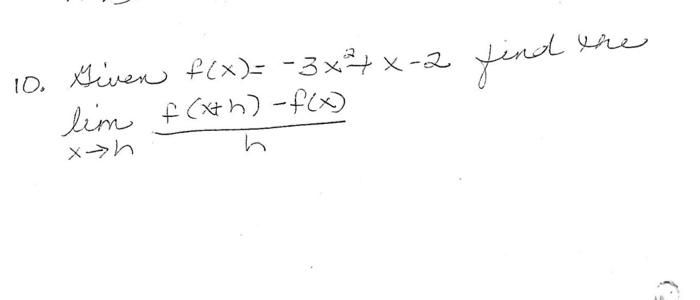 10. Given f(x)= -3x²+x-2 find the
lim f(x+h)-f(x)
x→h h